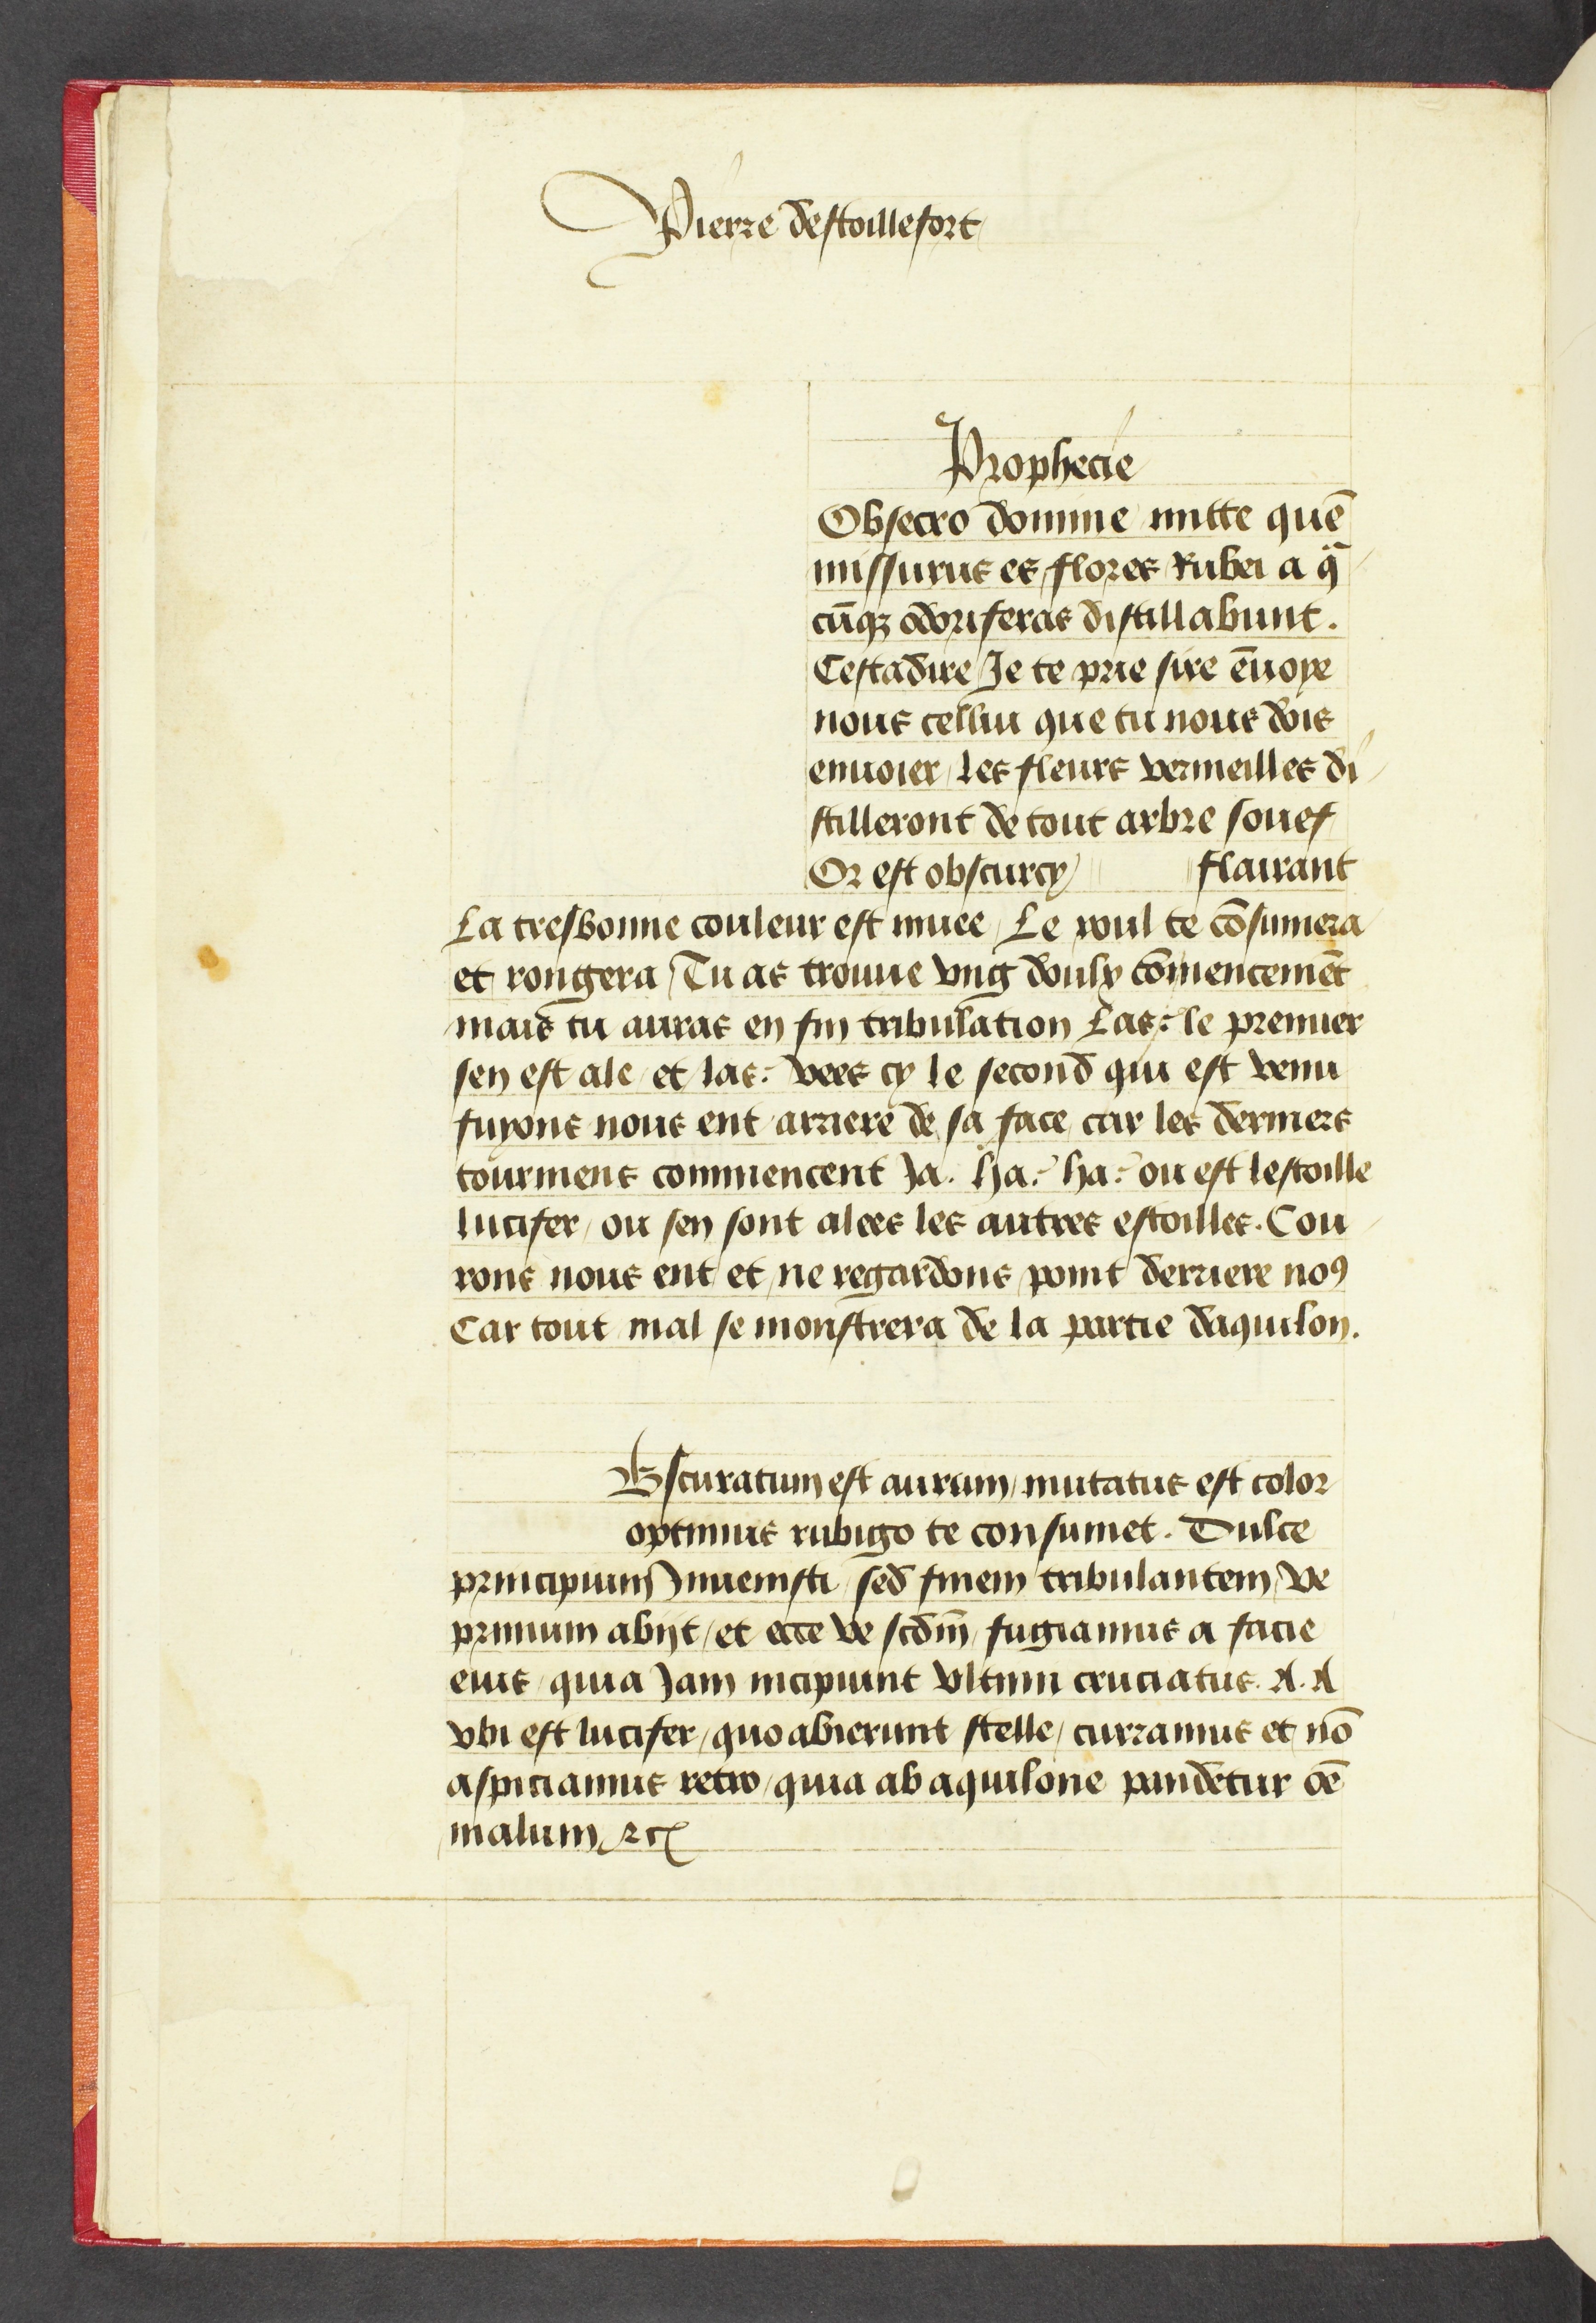 Pierre destoillefort
Prophecie
Obsecro domine mitte quē
missurus es flores Rubei a q̄
cūq; odoriferas distillabunt.
Cestadire Je te prie sire ēuoye
nous celluy que tu nous dois
enuoier, les fleurs vermeilles di
stilleront de tout arbre souef
Or est obscurcy flairant
La tresbonne couleur est muee, Le roul te cōsumera
et rongera, Tu as trouue vng doulx cōmencemēt
mais tu auras en fin tribulation Las: le premier
sen est ale, et las: vees cy le second qui est venu
fuyons nous ent arriere de sa face, car les derniers
tourmens commencent Ja. Ha: ha: ou est lestoille
lucifer, ou sen sont alees les autres estoilles. Cou
rons nous ent et ne regardons point derriere no9
Car tout mal se monstrera de la partie daquilon.
Obscuratum est aurum, mutatus est color
optimus rubigo te consumet. Dulce
principium Inuenisti, sed finem tribulantem, ve
primum abijt, et ecce ve scdm̄ fugiamus a facie
eius, quia Jam incipiunt vltimi cruciatus. A. A
vbi est lucifer, quo abierunt stelle, curramus et nō
aspiciamus retro, quia ab aquilone pandetur oē
malum, ⁊c